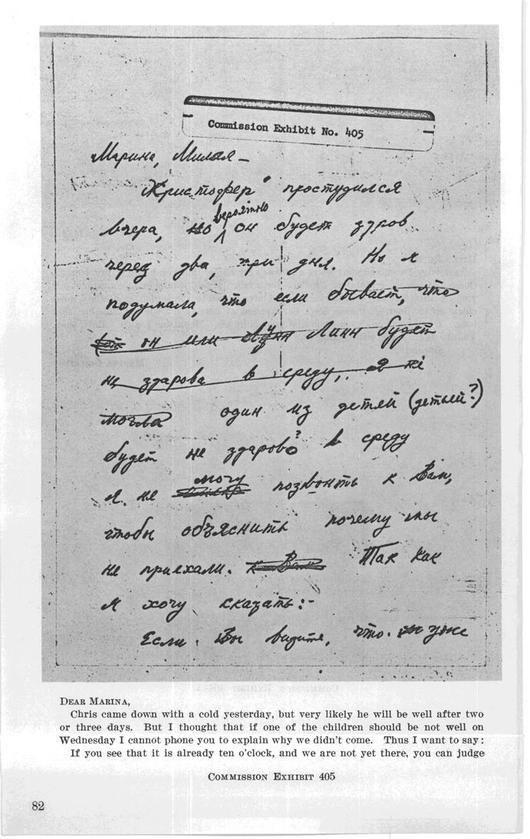 Commission Exhibit No. 405
Марина, Милая –
"Христофер" простудился
вчера, но вероятно он будет здров
через два, три дня. Но я
подумала, что если бывает, что
он или Линн будет
не здарова в среду, я не
могла один из детей (детьей?)
будет не здарово? в среду
я не могу позвонить к Вам,
чтобы объяснить почему мы
не приехали. к Вам Так как
я хочу сказать:-
Если Вы видите, что уже
DEAR MARINA,
Chris came down with a cold yesterday, but very likely he will be well after two
or three days. But I thought that if one of the children should be not well on
Wednesday I cannot phone you to explain why we didn't come. Thus I want to say:
If you see that it is already ten o'clock, and we are not yet there, you can judge
COMMISSION EXHIBIT 405
82